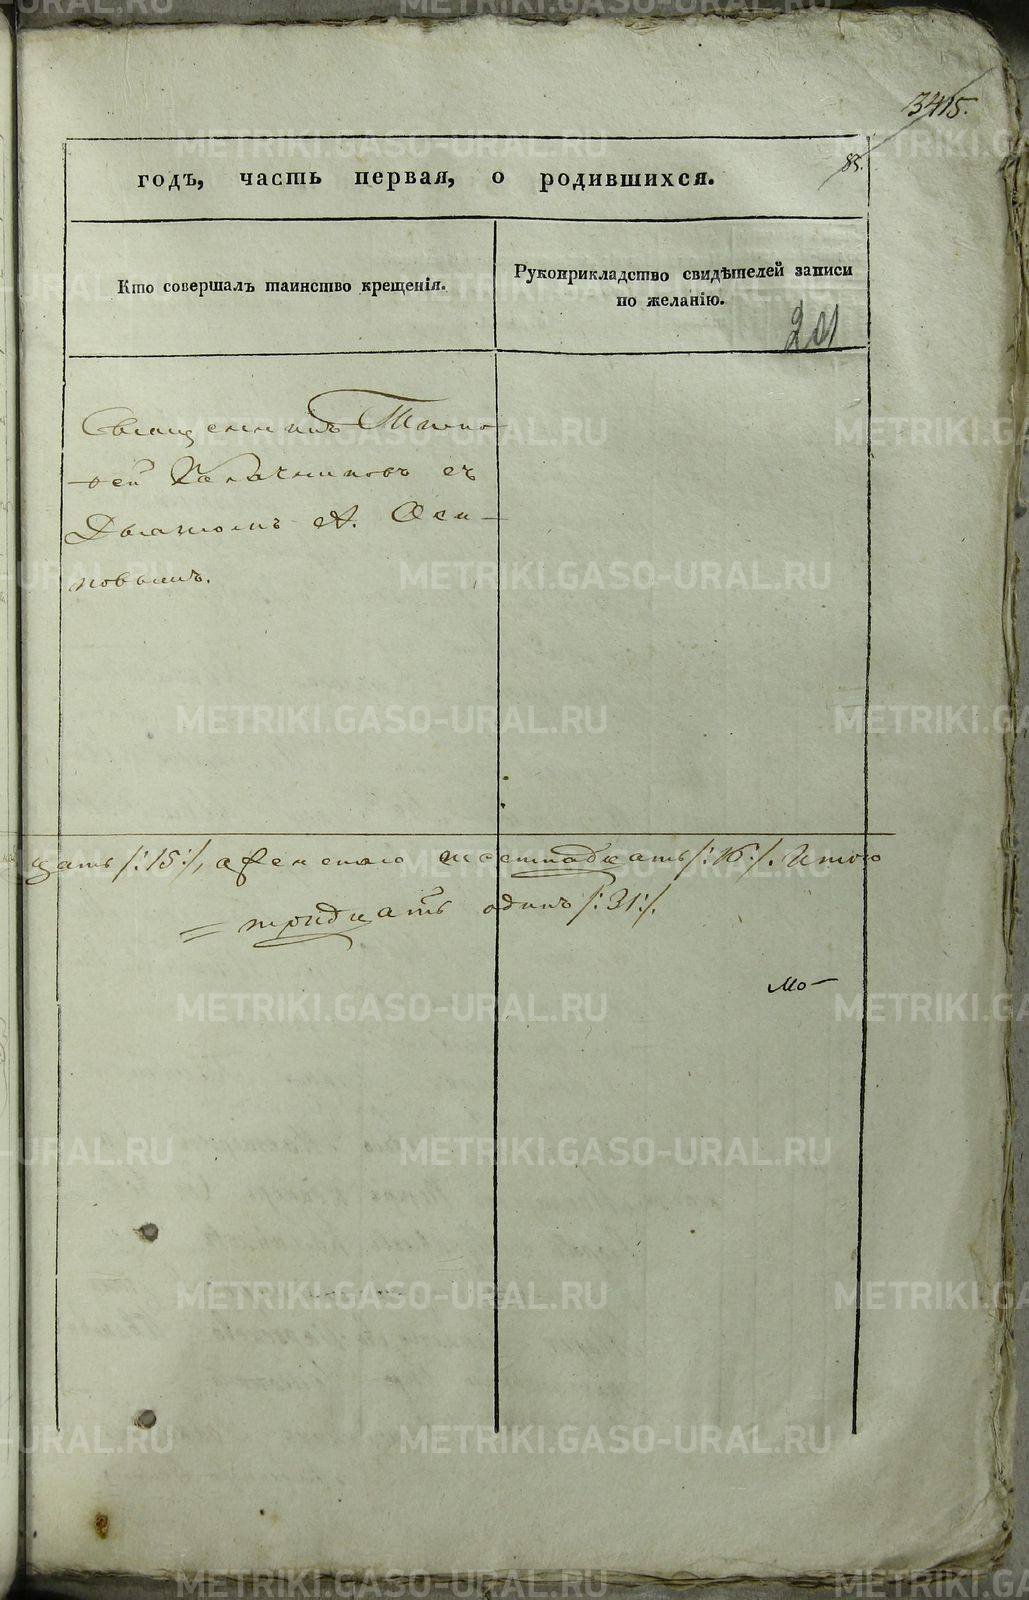 3415.
83.
годъ, часть первая, о родившихся.
Кто совершалъ таинство крещенія.
Рукоприкладство свидѣтелей записи
по желанію.
201
Священникъ Тимо-
ѳей Калачниковъ съ
Дьячкомъ А. Оси-
повымъ.
цать /:15:/, а женскаго шестнадцать /:16:/. Итого
= тридцать одинъ /:31:/.
Мо-
METRIKI.GASO-URAL.RU